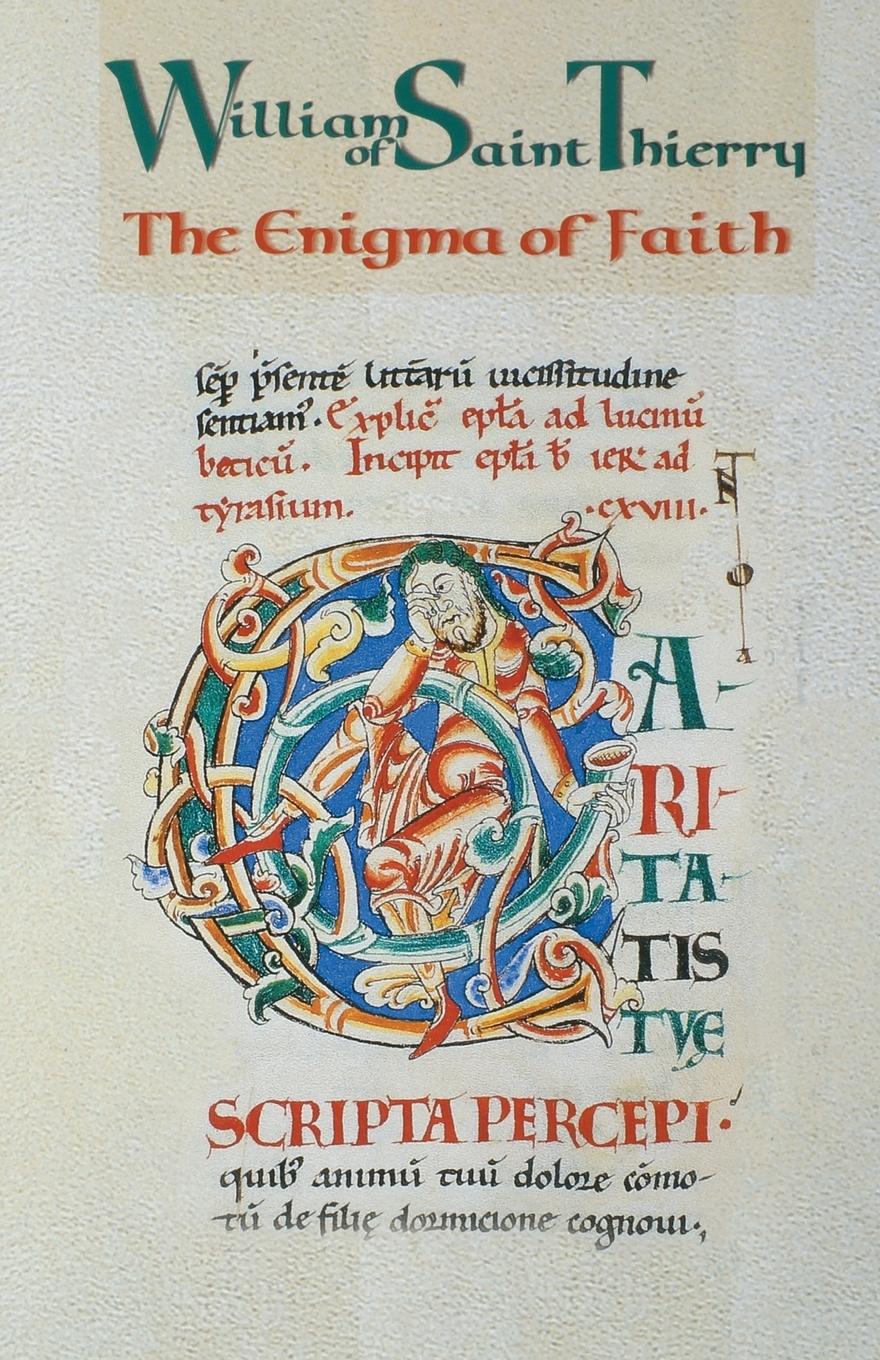 William of Saint Thierry
The Enigma of Faith
sēp p̄sentē litt̄arū uicissitudine
sentiam᷒. Explic̄ ep̄ła ad lucinū
beticū. Incipit ep̄ła b̄ ier ad
tyrasium. .cxviii.
A-
RI-
TA-
TIS
TVE
SCRIPTA PERCEPI.
quib᷒ animū tuū dolore cōmo-
tū de filię dormicione cognoui.,